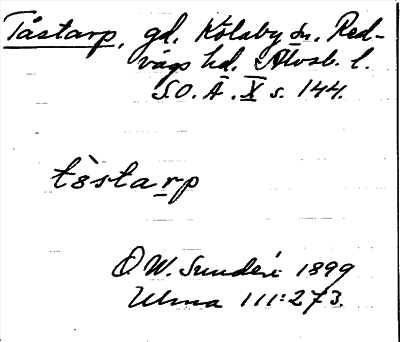 Tåstarp, gd. Kölaby sn. Red-
vägs hd. Älvsb. l.
S.O.Ä. X s. 144.
tɔ̀starp
O W. Sundén 1899
Ulma 111:273.